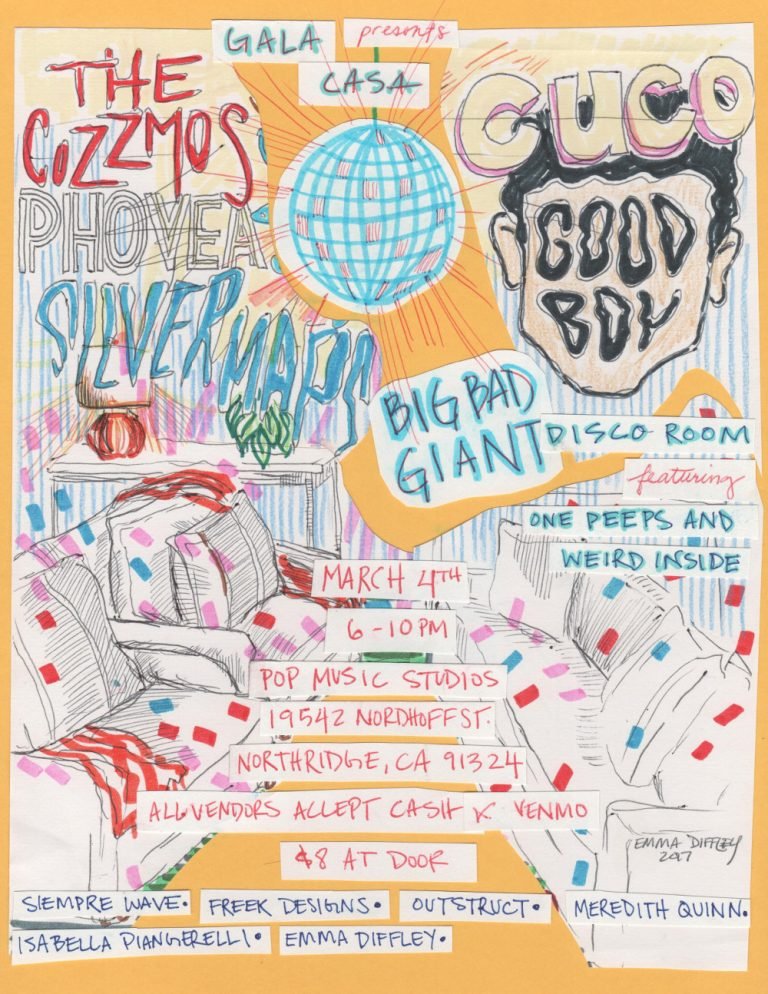 GALA presents
CASA
THE
COZZMOS
PHOVEA
SILVER MAPS
CUCO
GOOD
BOY
BIG BAD
GIANT
DISCO ROOM
featuring
ONE PEEPS AND
WEIRD INSIDE
MARCH 4TH
6-10PM
POP MUSIC STUDIOS
19542 NORDHOFF ST.
NORTHRIDGE, CA 91324
ALL VENDORS ACCEPT CASH & VENMO
$8 AT DOOR
EMMA DIFFLEY
2017
SIEMPRE WAVE• FREEK DESIGNS• OUTSTRUCT• MEREDITH QUINN•
ISABELLA PIANGERELLI• EMMA DIFFLEY•